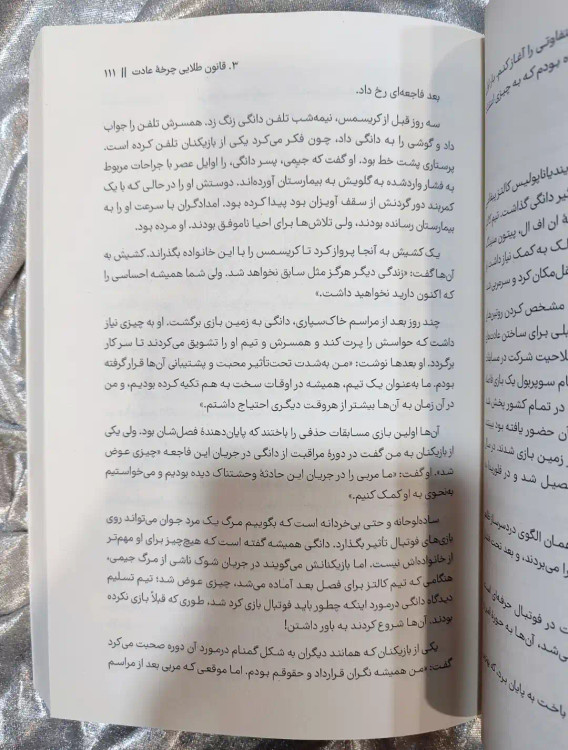 ۳. قانون طلایی چرخهٔ عادت || ۱۱۱
بعد فاجعه‌ای رخ داد.
سه روز قبل از کریسمس، نیمه‌شب تلفن دانگی زنگ زد. همسرش تلفن را جواب
داد و گوشی را به دانگی داد، چون فکر می‌کرد یکی از بازیکنان تلفن کرده است.
پرستاری پشت خط بود. او گفت که جیمی، پسر دانگی، را اوایل عصر با جراحات مربوط
به فشار واردشده به گلویش به بیمارستان آورده‌اند. دوستش او را در حالی که با یک
کمربند دور گردنش از سقف آویزان بود پیدا کرده بود. امدادگران با سرعت او را به
بیمارستان رسانده بودند، ولی تلاش‌ها برای احیا ناموفق بودند. او مرده بود.
یک کشیش به آنجا پرواز کرد تا کریسمس را با این خانواده بگذراند. کشیش به
آن‌ها گفت: «زندگی دیگر هرگز مثل سابق نخواهد شد. ولی شما همیشه احساسی را
که اکنون دارید نخواهید داشت.»
چند روز بعد از مراسم خاک‌سپاری، دانگی به زمین بازی برگشت. او به چیزی نیاز
داشت که حواسش را پرت کند و همسرش و تیم او را تشویق می‌کردند تا سر کار
برگردد. او بعدها نوشت: «من به‌شدت تحت‌تأثیر محبت و پشتیبانی آن‌ها قرار گرفته
بودم. ما به‌عنوان یک تیم، همیشه در اوقات سخت به هم تکیه کرده بودیم، و من
در آن زمان به آن‌ها بیشتر از هروقت دیگری احتیاج داشتم.»
آن‌ها اولین بازی مسابقات حذفی را باختند که پایان‌دهندهٔ فصل‌شان بود. ولی یکی
از بازیکنان به من گفت در دورهٔ مراقبت از دانگی در جریان این فاجعه «چیزی عوض
شد». او گفت: «ما مربی را در جریان این حادثهٔ وحشتناک دیده بودیم و می‌خواستیم
به‌نحوی به او کمک کنیم.»
ساده‌لوحانه و حتی بی‌خردانه است که بگوییم مرگ یک مرد جوان می‌تواند روی
بازی‌های فوتبال تأثیر بگذارد. دانگی همیشه گفته است که هیچ‌چیز برای او مهم‌تر
از خانواده‌اش نیست. اما بازیکنانش می‌گویند در جریان شوک ناشی از مرگ جیمی،
هنگامی که تیم کالتز برای فصل بعد آماده می‌شد، چیزی عوض شد؛ تیم تسلیم
دیدگاه دانگی درمورد اینکه چطور باید فوتبال بازی کرد شد، طوری که قبلاً بازی نکرده
بودند. آن‌ها شروع کردند به باور داشتن!
یکی از بازیکنان که همانند دیگران به شکل گمنام درمورد آن دوره صحبت می‌کرد
گفت: «من همیشه نگران قرارداد و حقوقم بودم. اما موقعی که مربی بعد از مراسم